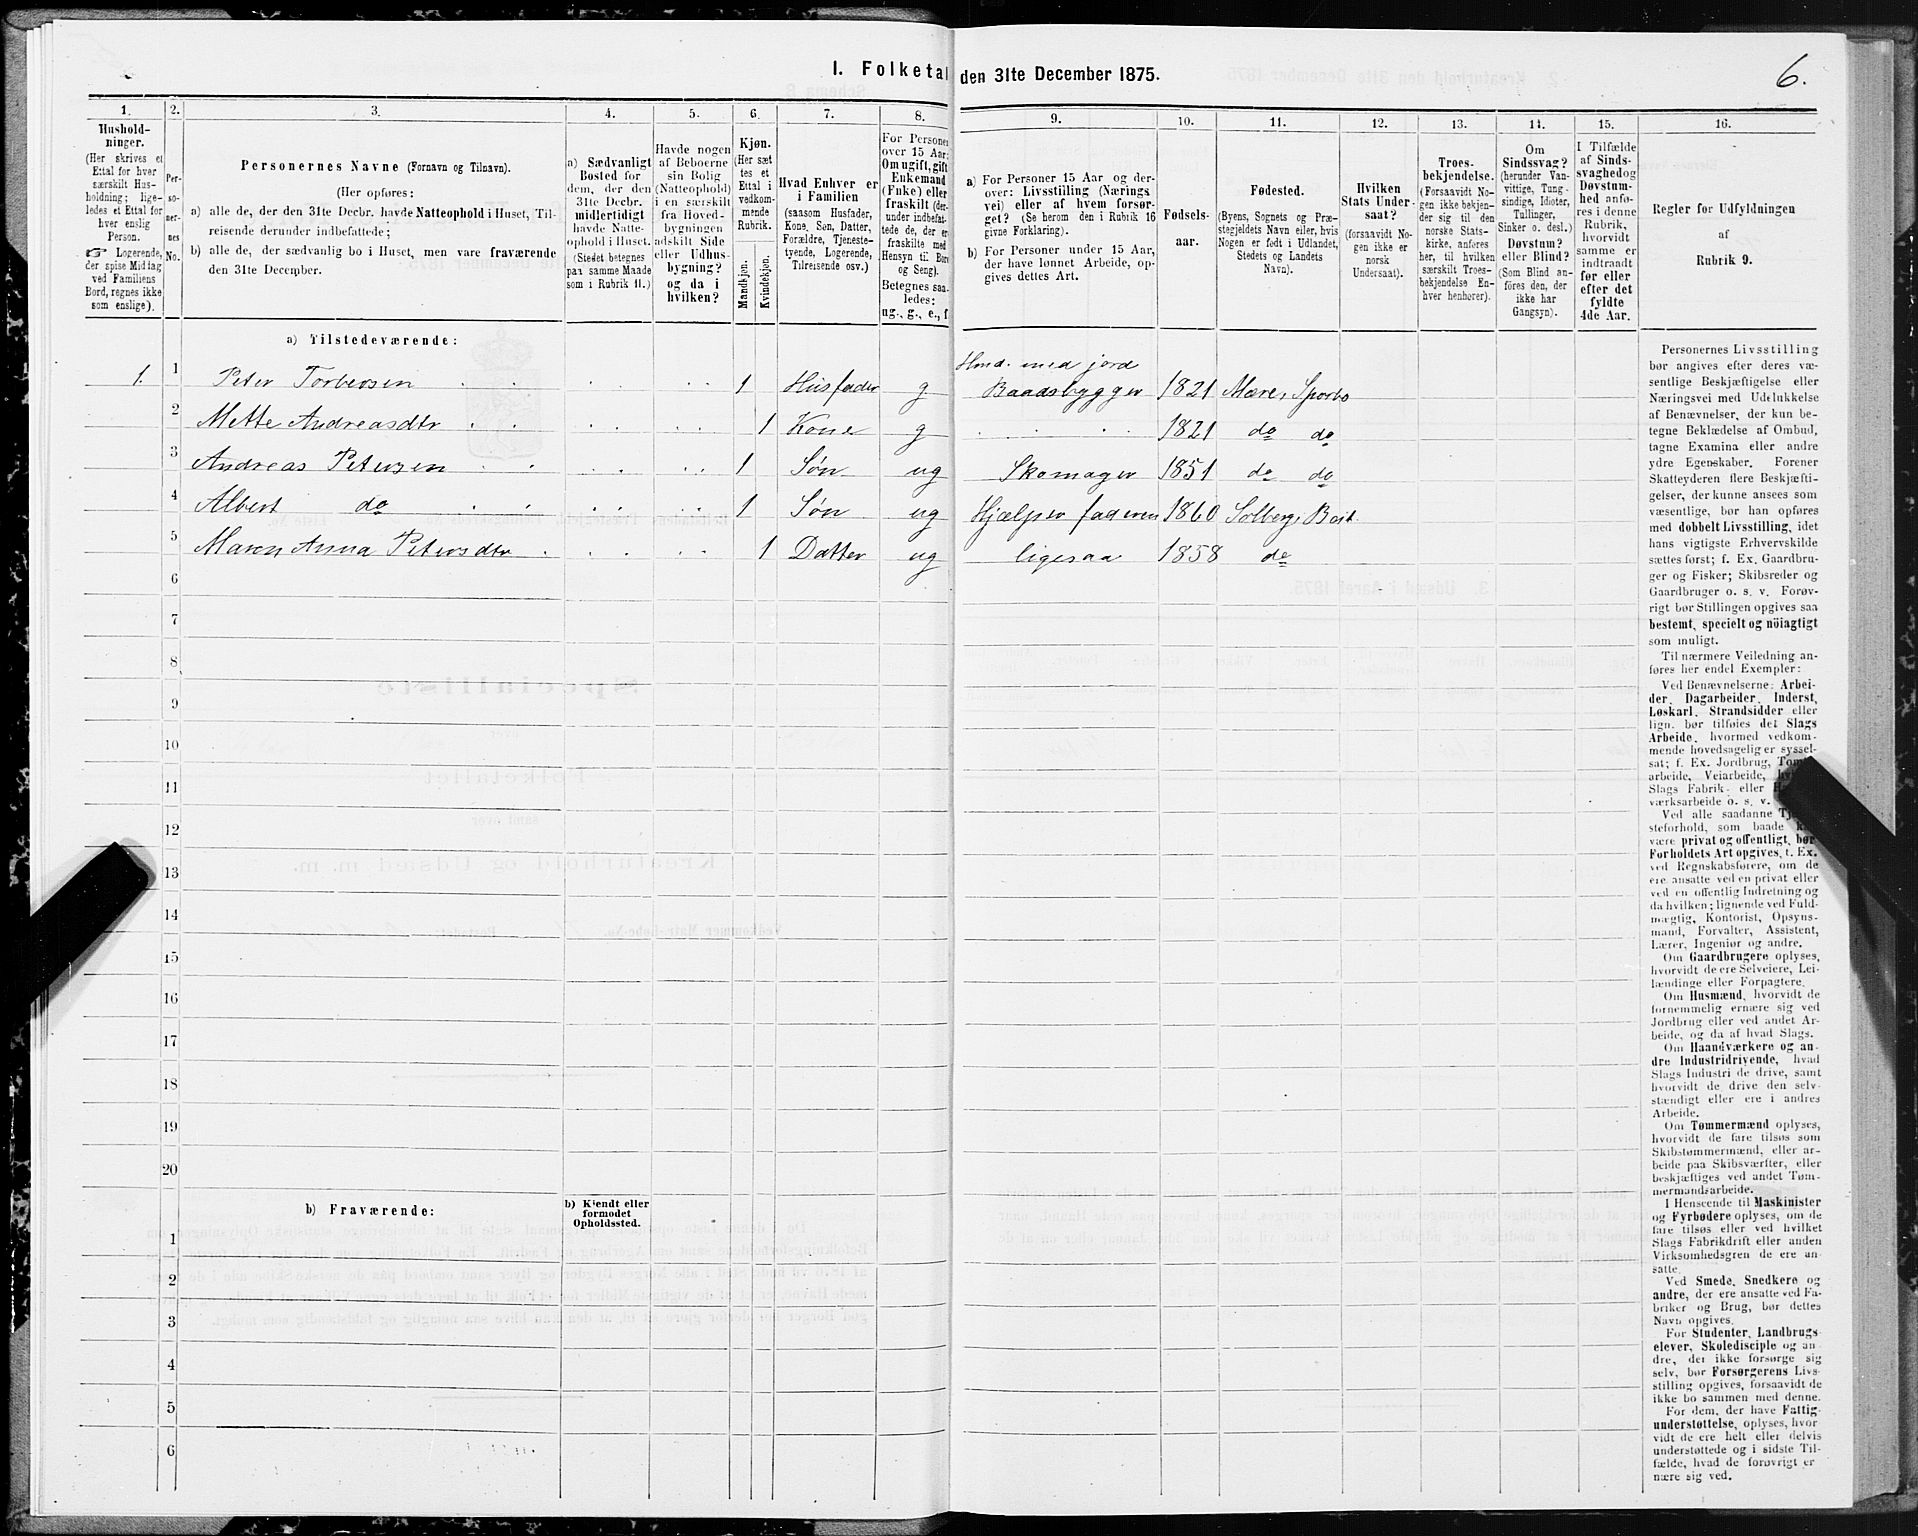 I. Folketal den 31te December 1875.
6.
1.
Hushold-
ninger.
(Her skrives et
Ettal for hver
særskilt Hus-
holdning; lige-
ledes et Ettal for
hver enslig
Person.
☞ Logerende,
der spise Middag
ved Familiens
Bord, regnes ikke
som enslige).
2.
Per-
so-
ner-
nes
No.
3.
Personernes Navne (Fornavn og Tilnavn).
(Her opføres:
a) alle de, der den 31te Decbr. havde Natteophold i Huset, Til-
reisende derunder indbefattede;
b) alle de, der sædvanlig bo i Huset, men vare fraværende
den 31te December.
4.
a) Sædvanligt
Bosted for
dem, der den
31te Decbr.
midlertidigt
havde Natte-
ophold i Huset.
(Stedet betegnes
paa samme Maade
som i Rubrik 11.)
5.
Havde nogen
af Beboerne
sin Bolig
(Natteophold)
i en særskilt
fra Hoved-
bygningen
adskilt Side
eller Udhus-
bygning?
og da i
hvilken?
6.
Kjøn.
(Her sæt
tes et
Ettal i
vedkom-
mende
Rubrik.
Mandkjøn.
Kvindekjøn.
7.
Hvad Enhver er
i Familien
(saasom Husfader,
Kone, Søn, Datter,
Forældre, Tjeneste-
tyende, Logerende,
Tilreisende osv.)
8.
For Personer
over 15 Aar:
Om ugift, gift
Enkemand
(Enke) eller
fraskilt (der-
under indbefat-
tede de, der er
fraskilte med
Hensyn til Bord
og Seng).
Betegnes saa-
ledes:
ug., g., e., f
9.
a) For Personer 15 Aar og der-
over: Livsstilling (Nærings
vei) eller af hvem forsør-
get? (Se herom den i Rubrik 16
givne Forklaring).
b) For Personer under 15 Aar,
der have lønnet Arbeide, op-
gives dettes Art.
10.
Fødsels-
aar.
11.
Fødested.
(Byens, Sognets og Præ-
stegjeldets Navn eller, hvis
Nogen er født i Udlandet,
Stedets og Landets
Navn).
12.
Hvilken
Stats Under-
saat?
(forsaavidt No-
gen ikke er
norsk
Undersaat).
13.
Troes-
bekjendelse.
(Forsaavidt No-
gen ikke bekjen-
der sig til den
norske Stats-
kirke, anføres
her, til hvilken
særskilt Troes-
bekjendelse En-
hver henhører).
14.
Om
Sindssvag?
(herunder Van-
vittige, Tung-
sindige, Idioter,
Tullinger,
Sinker o. desl.)
Døvstum?
eller Blind?
(Som Blind an-
føres den, der
ikke har
Gangsyn).
15.
I Tilfælde
af Sinds-
svaghed og
Døvstum-
hed anfø-
res i denne
Rubrik,
hvorvidt
samme er
indtraadt
før eller
efter det
fyldte
4de Aar.
16.
Regler for Udfyldningen
af
Rubrik 9.
a) Tilstedeværende:
Husd. med jord
1. 1 Peter Torbersen 1 Husfader g Baadsbygger 1821 Mære, Sparbo
2 Mette Andreasdtr 1 Kone g 1821 do do
3 Andreas Petersen 1 Søn ug Skomager 1851 do do
4 Albert do 1 Søn ug Hjælper faderen 1860 Solberg, Beit.
5 Maren Anna Petersdtr 1 Datter ug ligesaa 1858 do
6
7
8
9
10
11
12
13
14
15
16
17
18
19
20
b) Fraværende:
b) Kjendt eller
formodet
Opholdssted.
1
2
3
4
5
6
Personernes Livsstilling
bør angives efter deres væ-
sentlige Beskjæftigelse eller
Næringsvei med Udelukkelse
af Benævnelser, der kun be-
tegne Beklædelse af Ombud,
tagne Examina eller andre
ydre Egenskaber. Forener
Skatteyderen flere Beskjæfti-
gelser, der kunne ansees som
væsentlige, bør han opføres
med dobbelt Livsstilling, idet
hans vigtigste Erhvervskilde
sættes først; f. Ex. Gaardbru-
ger og Fisker; Skibsreder og
Gaardbruger o. s. v. Forøv-
rigt bør Stillingen opgives saa
bestemt, specielt og nöiagtigt
som muligt.
Til nærmere Veiledning an-
føres her endel Exempler:
Ved Benævnelserne: Arbei-
der, Dagarbeider, Inderst,
Løskarl, Strandsidder eller
lign. bør tilføies det Slags
Arbeide, hvormed vedkom-
mende hovedsagelig er syssel-
sat; f. Ex. Jordbrug,
arbeide, Veiarbeide,
Slags Fabrik- eller
værksarbeide o. s. v.
Ved alle saadanne
steforhold, som baade
være privat og offentligt, bør
Forholdets Art opgives, f. Ex.
ved Regnskabsførere, om de
ere ansatte ved en privat eller
ved en offentlig Indretning og
da hvilken; lignende ved Fuld-
mægtig, Kontorist, Opsyns-
mand, Forvalter, Assistent,
Lærer, Ingeniør og andre.
Om Gaardbrugere oplyses,
hvorvidt de ere Selveiere, Lei-
lændinge eller Forpagtere.
Om Husmænd, hvorvidt de
fornemmelig ernære sig ved
Jordbrug eller ved andet Ar-
beide, og da af hvad Slags.
Om Haandværkere og an-
dre Industridrivende, hvad
Slags Industri de drive, samt
hvorvidt de drive den selv-
stændigt eller ere i andres
Arbeide.
Om Tømmermænd oplyses,
hvorvidt de fare tilsøs som
Skibstømmermænd, eller ar-
beide paa Skibsværfter, eller
beskjæftiges ved andet Tøm-
mermandsarbeide.
I Henseende til Maskinister
og Fyrbødere oplyses, om de
fare tilsøs eller ved hvilket
Slags Fabrikdrift eller anden
Virksomhedsgren de ere an-
satte.
Ved Smede, Snedkere og
andre, der ere ansatte ved Fa-
briker og Brug, bør dettes
Navn opgives.
For Studenter, Landbrugs-
elever, Skoledisciple og an-
dre, der ikke forsørge sig
selv, bør Forsørgerens Livs-
stilling opgives, forsaavidt de
ikke bo sammen med denne.
For dem, der have Fattig-
understøttelse, oplyses, hvor-
vidt de ere helt eller delvis
understøttede og i sidste Til-
fælde, hvad de forøvrigt er
nære sig ved.